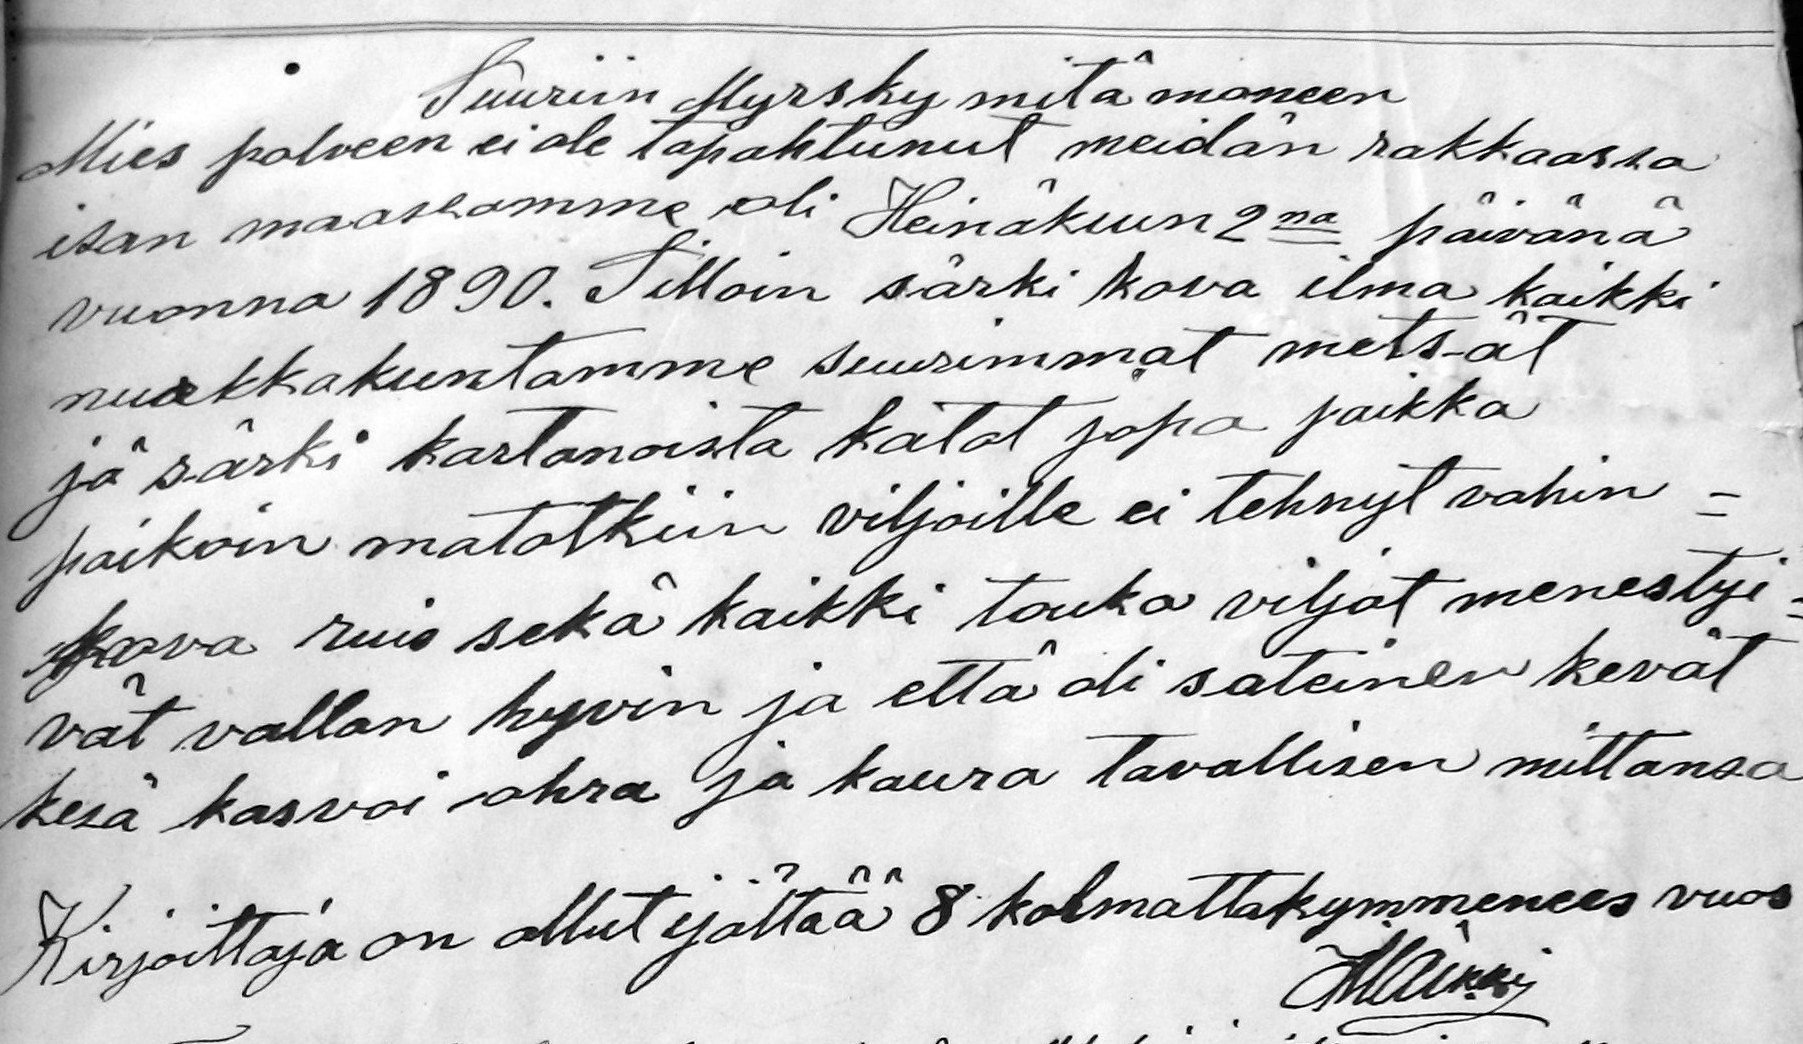 Suuriin Myrsky mitä moneen
Mies polveen ei ole tapahtunut meidän rakkaassa
isan maassamme oli Heinäkuun 2na päivänä
vuonna 1890. Silloin särki kova ilma kaikki
nurkkakuntamme suurimmat metsät
jä särki kartanoista katot jopa paikka
paikoin matotkiin viljoille ei tehnyt vahin=
kova ruis sekä kaikki touko viljat menestyi=
vät vallan hyvin ja että oli sateinen kevät
kesä kasvoi ohra ja kaura tavallisen mittansa
Kirjoittaja on ollut ijältää 8 kolmattakymmenees vuos